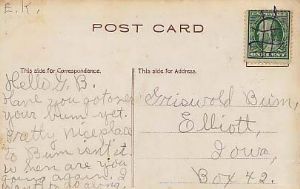 E.K.
POST CARD
This side for Correspondence.
This side for Address.
Hello G.B.
Have you gotover
your bum yet.
Pretty Nice place
to Bum isn't it.
when are you
going again. I
want to go along.
Griswold Bum,
Elliott,
Iowa,
Box 42.